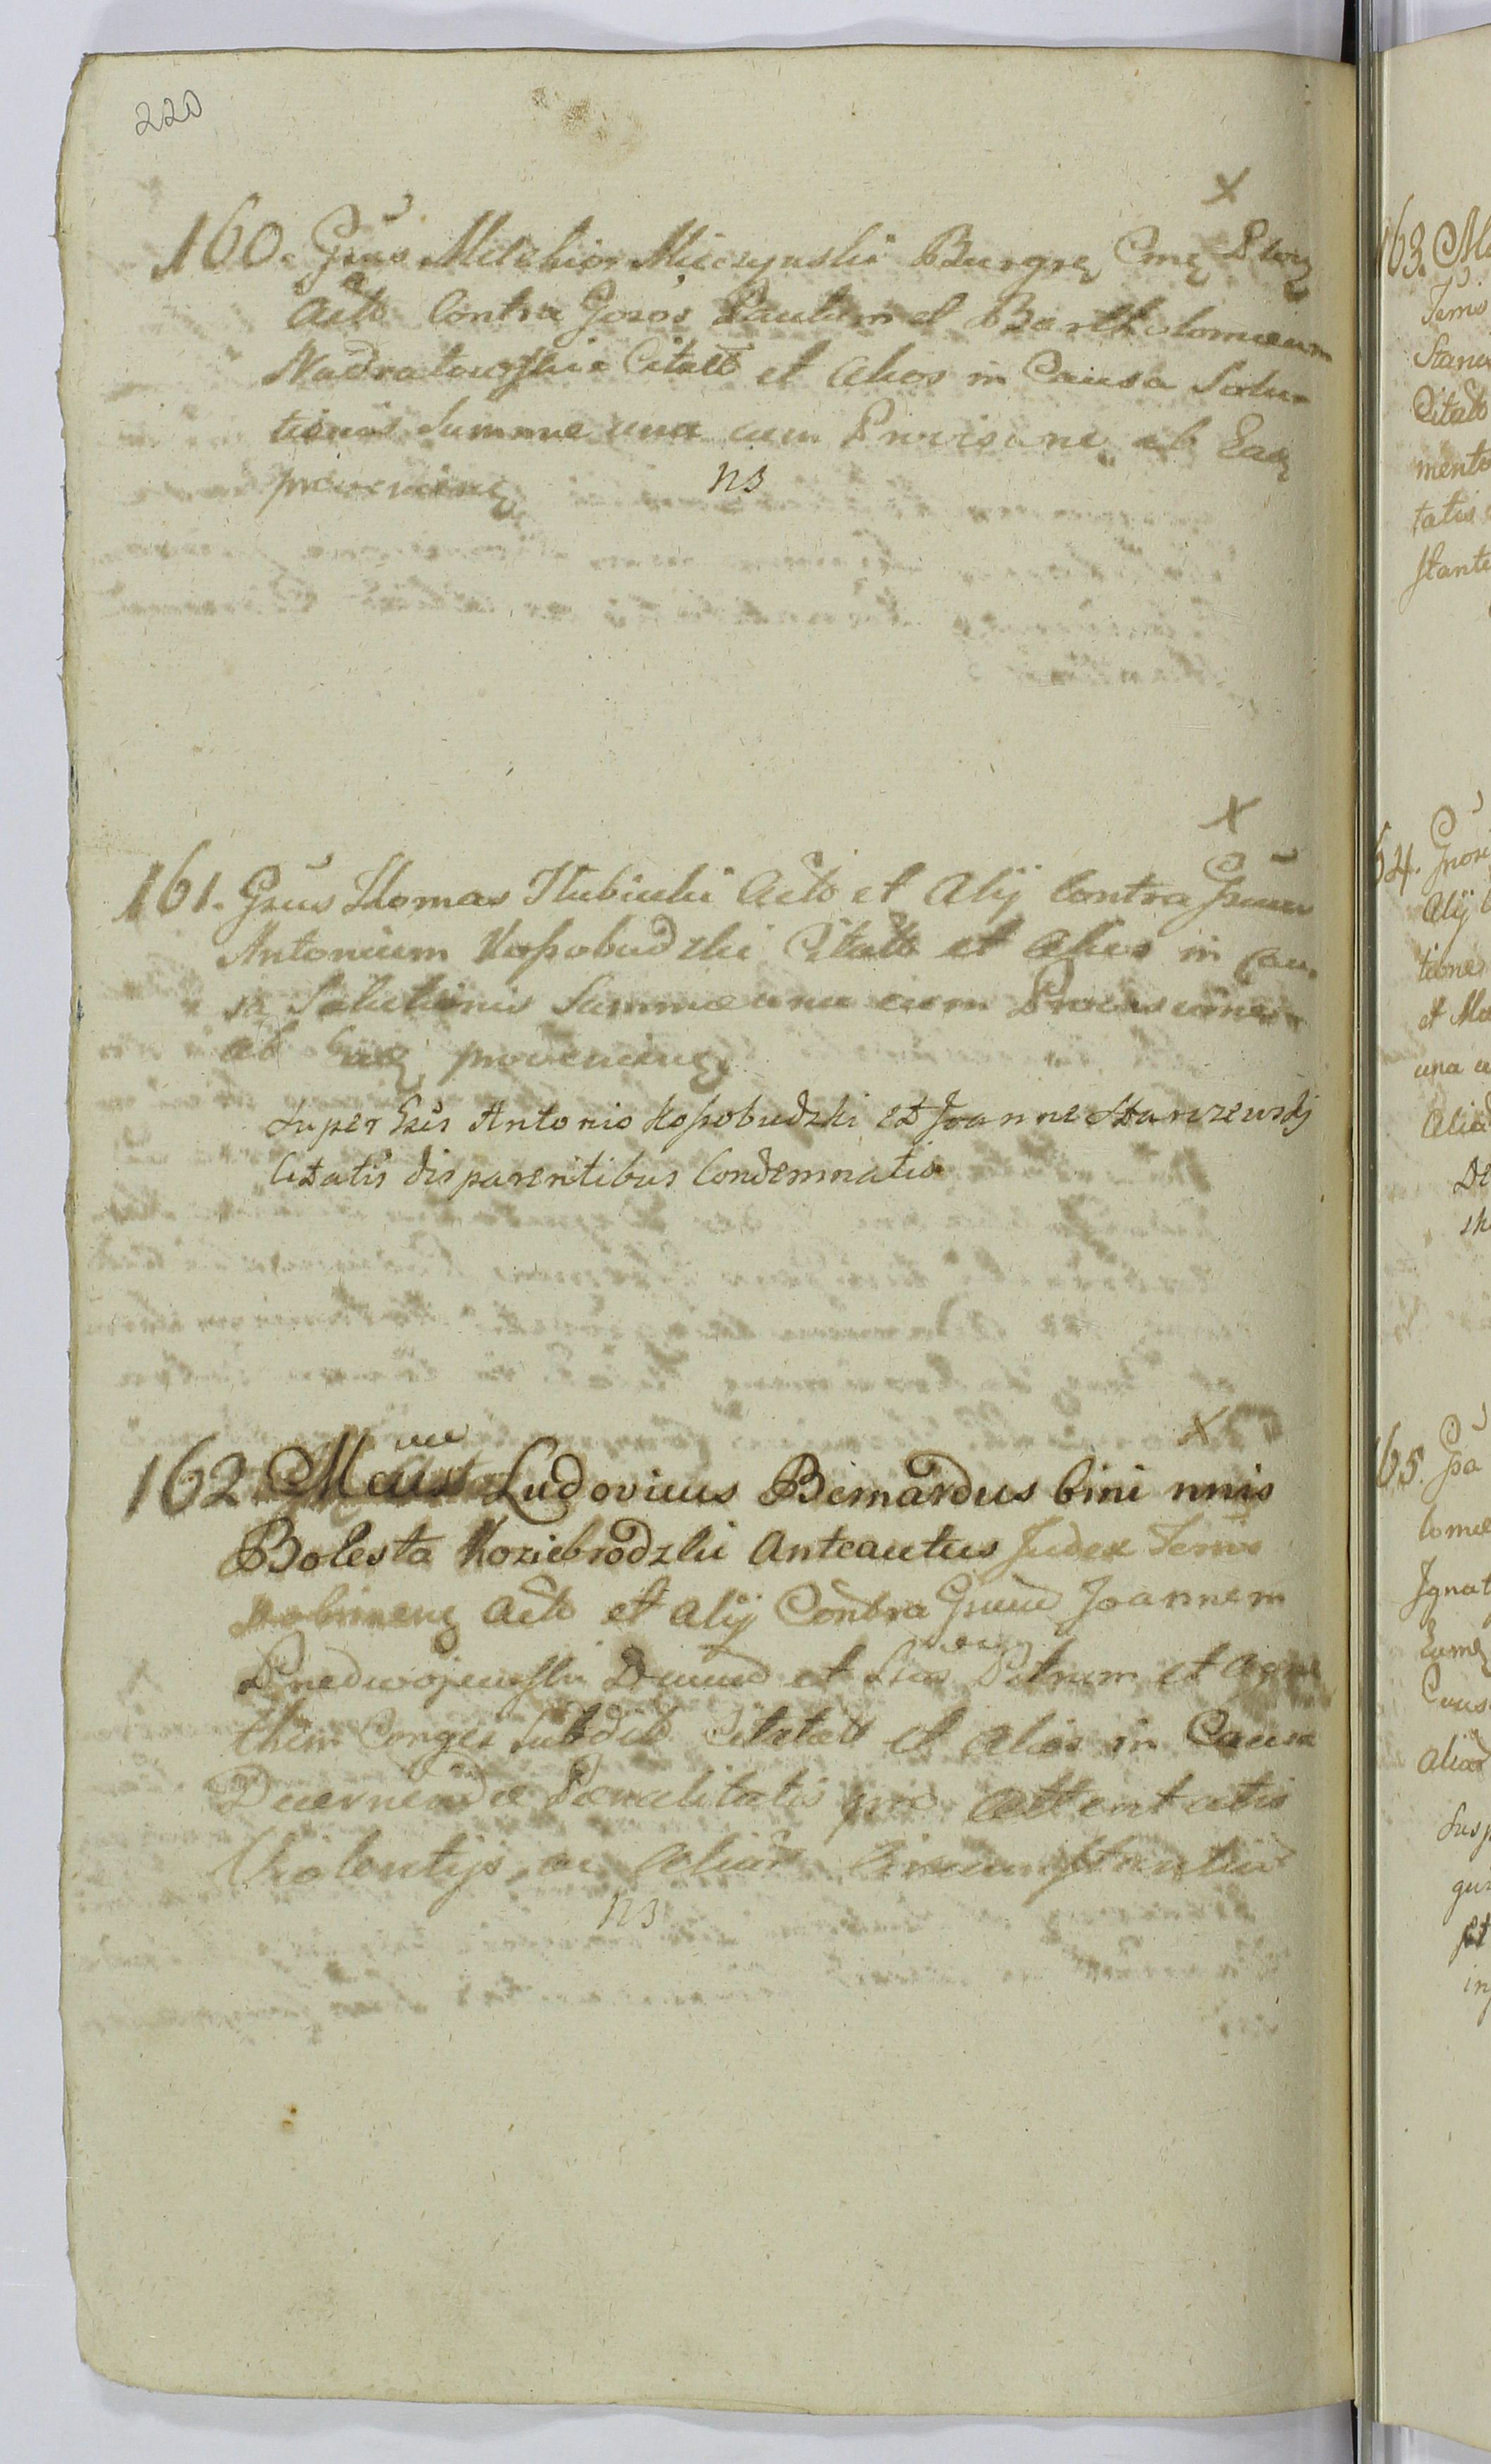 220
x
160. Gsus Melchior Mieczynski Burgrę Cmę Plocę
Acto Contra Gosos Paulum et Bartholomæum
Nadratowskie Citatt et Alios in Causa Solu-
tionis Summæ una cum Provisione ab Eaę
provenienę
ns
x
161. Gsus Thomas Hubicki Acto et Alij Contra Gsum
Antonium Kossobudzki Citatt et Alios in Cau-
sa Solutionis Summæ una cum Provisione
ab Eaę provenienę
Super Gsis Antonio Kossobudzki et Joanne
Citatis disparentibus Condemnatio
x
162. Mcus Ludovicus Bernardus bini nnis
Bolesta Koziebrodzki Anteactus Judex Terris
Dobrinenę Acto et Alij Contra Gsum Joannem
et Petrum et Agne
them Conges Subdit Citatt et alios in Causa
Decernendæ Pœnalitatis pro attentatis
Violentijs, ac alias Circumstantias
ns
163. M
Terris
Stani
Citato
mento
tatis
stanti
64. Gsor
Alij C
tiones
et Ma
una cu
Alias
De
sk
65. Gsa
lomæ
Ignat
Eumę
Caus
alias
Susp
et